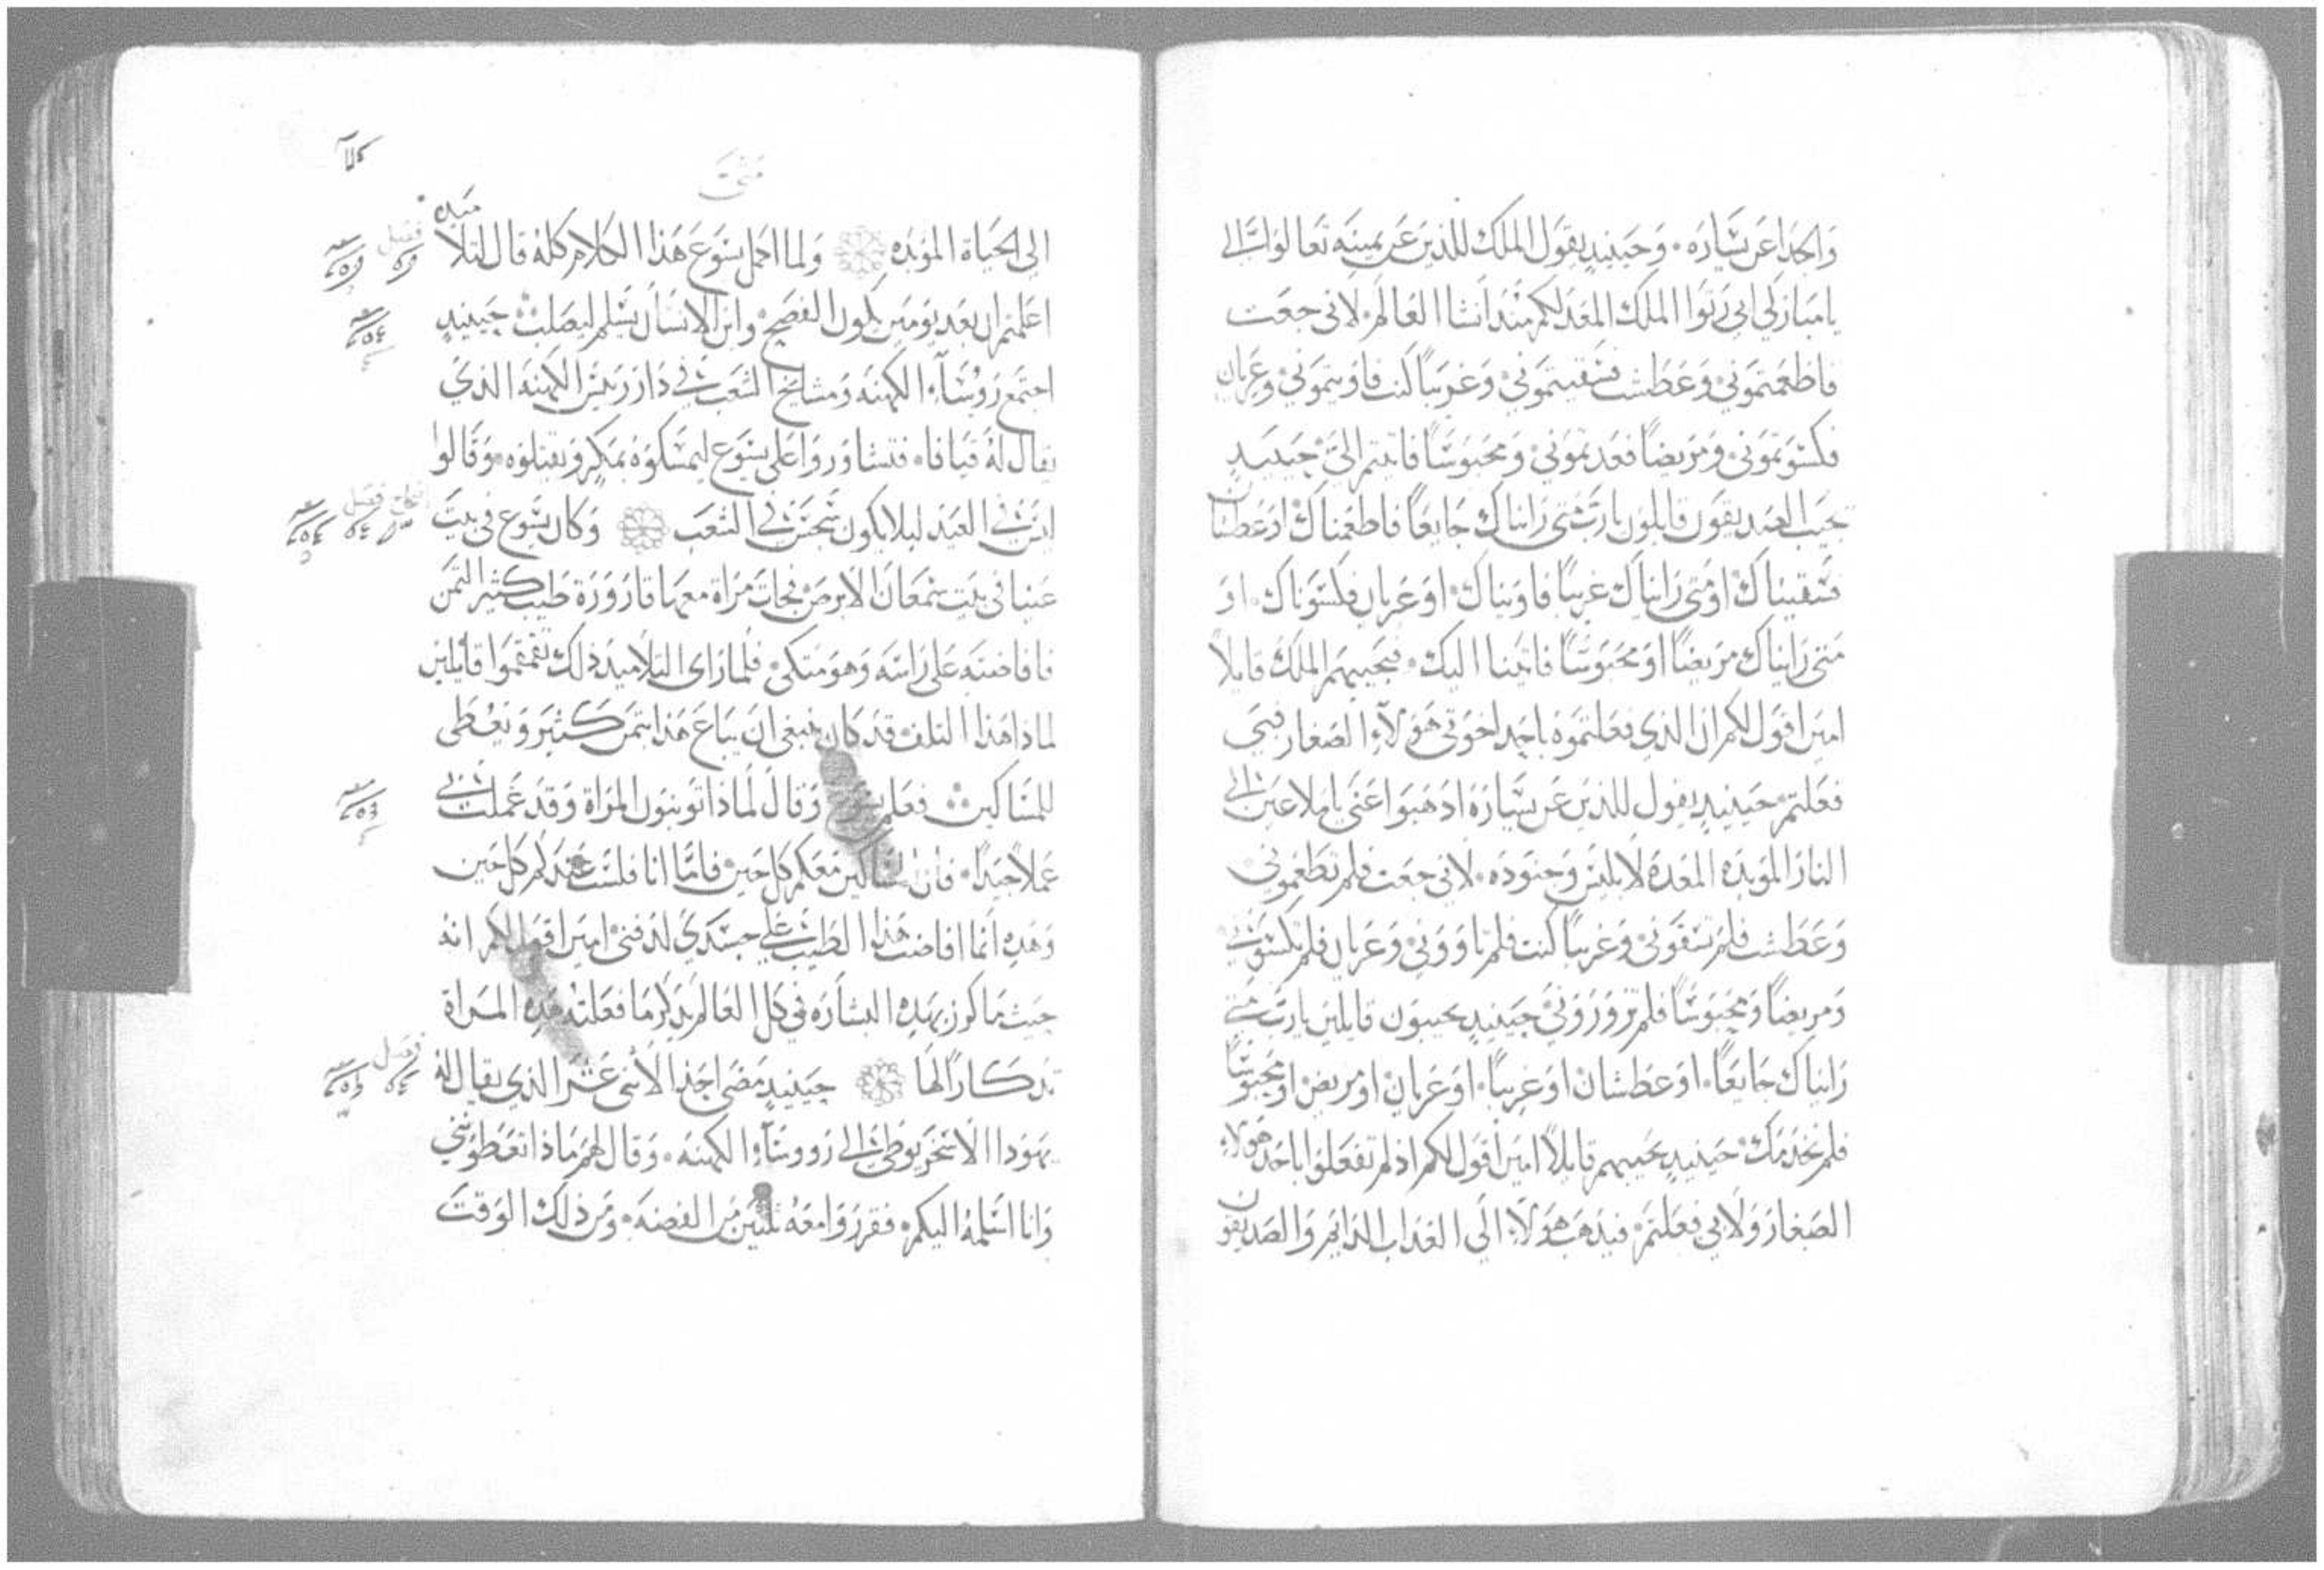 والجدا عن يساره. وحينيذ يقول الملك للذين عن يمينه تعالوا الي
يا مباركي ابي رثوا الملك المعد لكم منذ انشا العالم. لاني جعت
فاطعمتموني وعطشت فسقيتموني وغريبا كنت فاويتموني وعريان
فكسوتموني ومريضا فعدتموني ومحبوسا فاتيتم الي حينيذ
تجيب الصديقون قايلون يا رب متى رايناك جايعا فاطعمناك او عطشان
فسقيناك او متى رايناك غريبا فاويناك او عريان فكسوناك. او
متى رايناك مريضا او محبوسا فاتينا اليك. فيجيبهم الملك قايلا
امين اقول لكم ان الذي فعلتموه باحد اخوتي هولاء الصغار فبي
فعلتم حينيذ يقول للذين عن يساره اذهبوا عني يا ملاعين الي
النار الموبده المعده لابليس وجنوده. لاني جعت فلم تطعموني
وعطشت فلم تسقوني وغريبا كنت فلم تاووني وعريان فلم تكسوني
ومريضا ومحبوسا فلم تزوروني حينيذ يجيبون قايلين يا رب متى
رايناك جايعا. او عطشان او غريبا. او عريان او مريض او محبوسا
فلم نخدمك حينيذ يجيبهم قايلا امين اقول لكم اذ لم تفعلوا باحد هولاء
الصغار ولا بي فعلتم فيذهب هولاء الي العذاب الدايم والصديقون
متى
الى الحياة الموبده ولما اكمل يسوع هذا الكلام كله قال لتلاميذه
فصل
اعلمتم ان بعد يومين يكون الفصح وابن الانسان يسلم ليصلب حينيذ
اجتمع روساء الكهنه ومشايخ الشعب في دار رييس الكهنه الذي
يقال له قيافا. فتشاوروا على يسوع ليمسكوه بمكر ويقتلوه. وقالوا
ليس في العيد ليلا يكون شجس في الشعب وكان يسوع في بيت
فصل
عنيا في بيت سمعان الابرص فجات مراة معها قارورة طيب كثير الثمن
فافاضته على راسه وهو متكي. فلما راى التلاميذ ذلك تقمقموا قايلين
لماذا هذا التلف قد كان ينبغي ان يباع هذا بثمن كثير ويعطى
للمساكين فعلم يسوع وقال لماذا توبنون المراة وقد عملت في
عملا جيدا. فان المساكين معكم كل حين فاما انا فلست عندكم كل حين
وهذه انما افاضت هذا الطيب على جسدي لدفني امين اقول لكم انه
حيث ما كرز بهذه البشاره في كل العالم يذكر ما فعلته هذه المراة
تذكارا لها حينيذ مضى احد الاثنى عشر الذي يقال له
فصل
يهودا الاسخريوطي الى رووساء الكهنه. وقال لهم ماذا تعطوني
وانا اسلمه اليكم. فقرروا معه ثلثين من الفضه. ومن ذلك الوقت